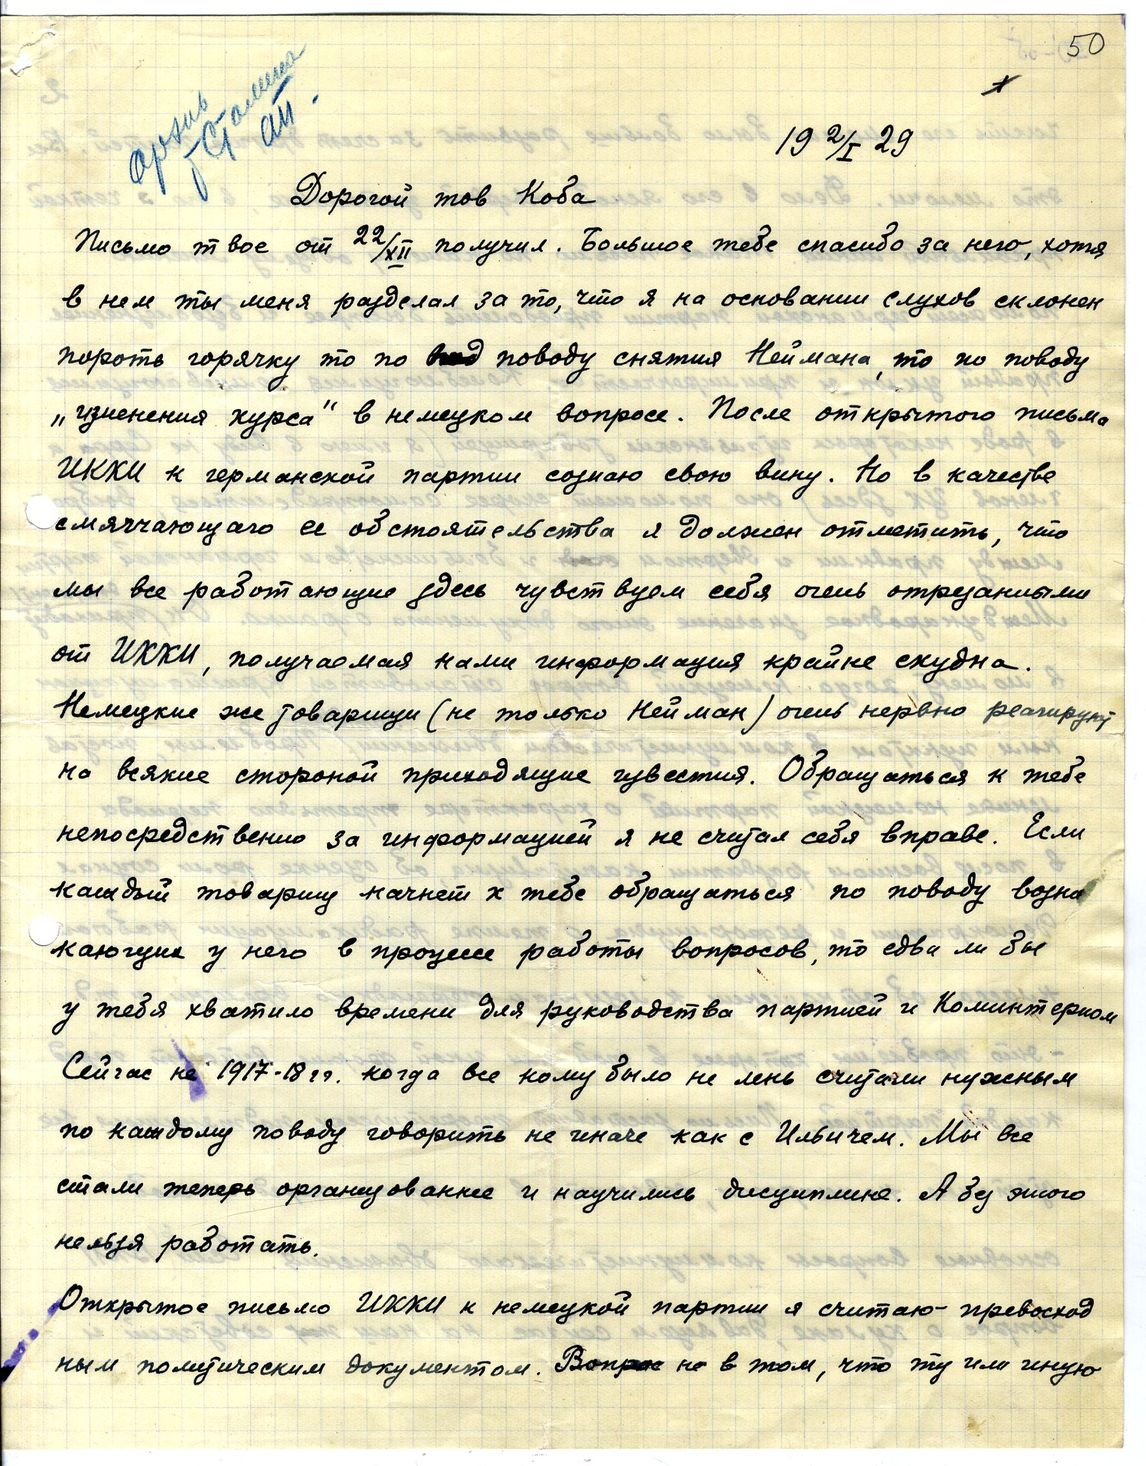 50
архив
т Сталина
ап.
19 2/I 29
Дорогой тов Коба
Письмо твое от 22/XII получил. Большое тебе спасибо за него, хотя
в нем ты меня разделал за то, что я на основании слухов склонен
пороть горячку то по поводу снятия Неймана, то по поводу
„изменения курса" в немецком вопросе. После открытого письма
ИККИ к германской партии сознаю свою вину. Но в качестве
смягчающаго ее обстоятельства я должен отметить, что
мы все работающие здесь чувствуем себя очень отрезанными
от ИККИ, получаемая нами информация крайне скудна.
Немецкие же товарищи (не только Нейман) очень нервно реагируют
на всякие стороной приходящие известия. Обращаться к тебе
непосредственно за информацией я не считал себя вправе. Если
каждый товарищ начнет к тебе обращаться по поводу возни
кающих у него в процессе работы вопросов, то едва ли бы
у тебя хватило времени для руководства партией и Коминтерном
Сейчас не 1917-18 гг. когда все кому было не лень считали нужным
по каждому поводу говорить не иначе как с Ильичем. Мы все
стали теперь организованнее и научились дисциплине. А без этого
нельзя работать.
Открытое письмо ИККИ к немецкой партии я считаю превосход
ным политическим документом. Вопрос не в том, что ту или иную